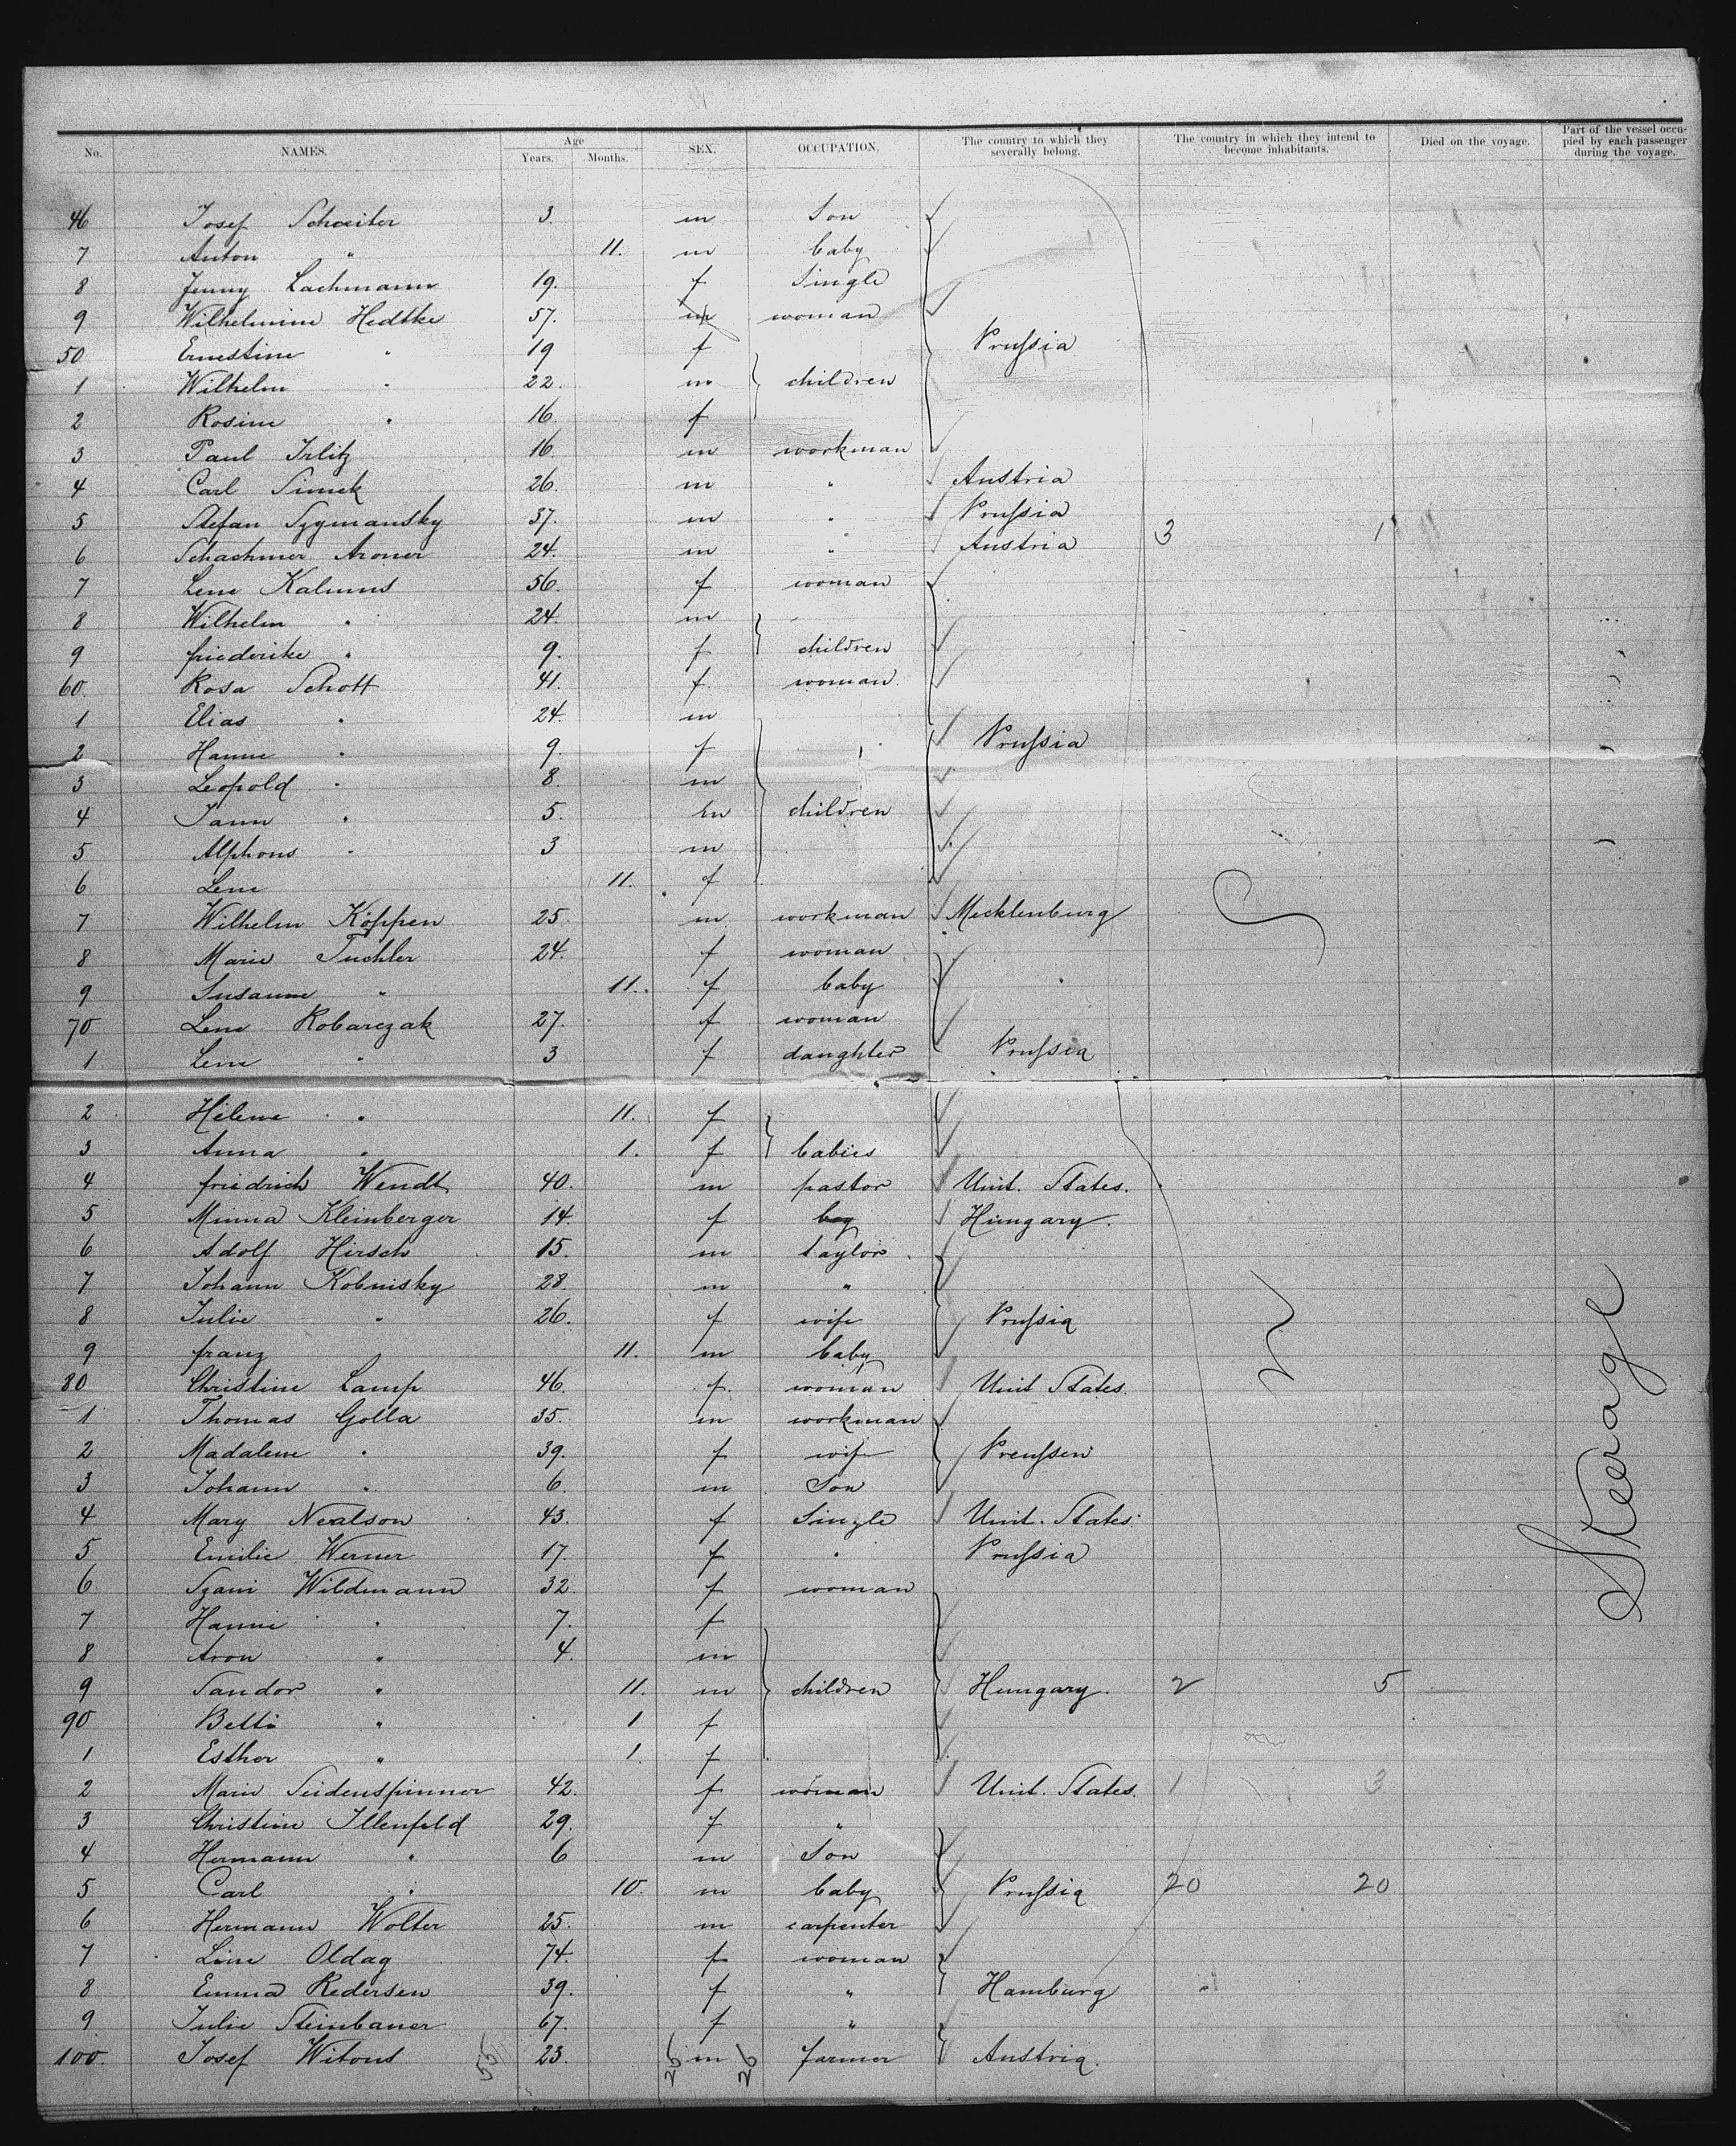 No. NAMES. Age Years. Months. SEX. OCCUPATION. The country to which they severally belong. The country in which they intend to become inhabitants. Died on the voyage. Part of the vessel occupied by each passenger during the voyage.
46 Josef Schreiter 3. m Son
7 Anton " 11. m baby
8 Jenny Lachmann 19. f Single
9 Wilhelmine Hedtke 57. woman
50 Ernestine " 19 f Prussia
1 Wilhelm " 22. m children
2 Rosine " 16. f
3 Paul Irlitz 16. m workman
4 Carl Simek 26. m " Austria
5 Stefan Szymansky 37. m " Prussia
6 Schachmer Aroner 24. m " Austria 3 1
7 Lene Kalmus 56. f woman
8 Wilhelm " 24. m
9 friederike " 9. f children
60. Rosa Schott 41. f woman
1 Elias " 24. m
2 Hanne " 9. f Prussia
3 Leopold " 8. m
4 Jann " 5. m children
5 Alphons " 3 m
6 Lene 11. f
7 Wilhelm Köppen 25 m workman Mecklenburg
8 Marie Tuchler 24. f woman
9 Susanne " 11. f baby
70 Lene Robarczak 27. f woman
1 Lene " 3 f daughter Prussia
2 Hélene " 11. f
3 Anna " 1. f babies
4 friedrich Wendt 40. m pastor Unit. States.
5 Minna Kleinberger 14. f boy Hungary.
6 Adolf Hirsch 15. m taylor
7 Johann Kobnisky 28. m "
8 Julie " 26. f wife Prussia
9 franz 11. m baby
80 Christine Lamp 46. f. woman Unit States.
1 Thomas Golla 35. m workman
2 Madalene " 39. f wife Preussen
3 Johann " 6. m Son
4 Mary Nealson 43. f Single Unit. States.
5 Emilie Werner 17. f " Prussia
6 Szani Wildmann 32. f woman
7 Hanni " 7. f
8 Aron " 4. m
9 Sandor " 11. m children Hungary. 2 5
90 Betti " 1 f
1 Esther " 1. f
2 Marie Seidenspinner 42. f woman Unit. States. 1 3
3 Christine Illenfeld 29. f "
4 Hermann " 6 m Son
5 Carl " 10. m baby Prussia 20 20
6 Hermann Wolter 25. m carpenter
7 Line Oldag 74. f woman
8 Emma Redersen 39. f " Hamburg
9. Julie Steinbauer 67. f "
100. Josef Witous 23. m farmer Austria.
55 26 26
Steerage